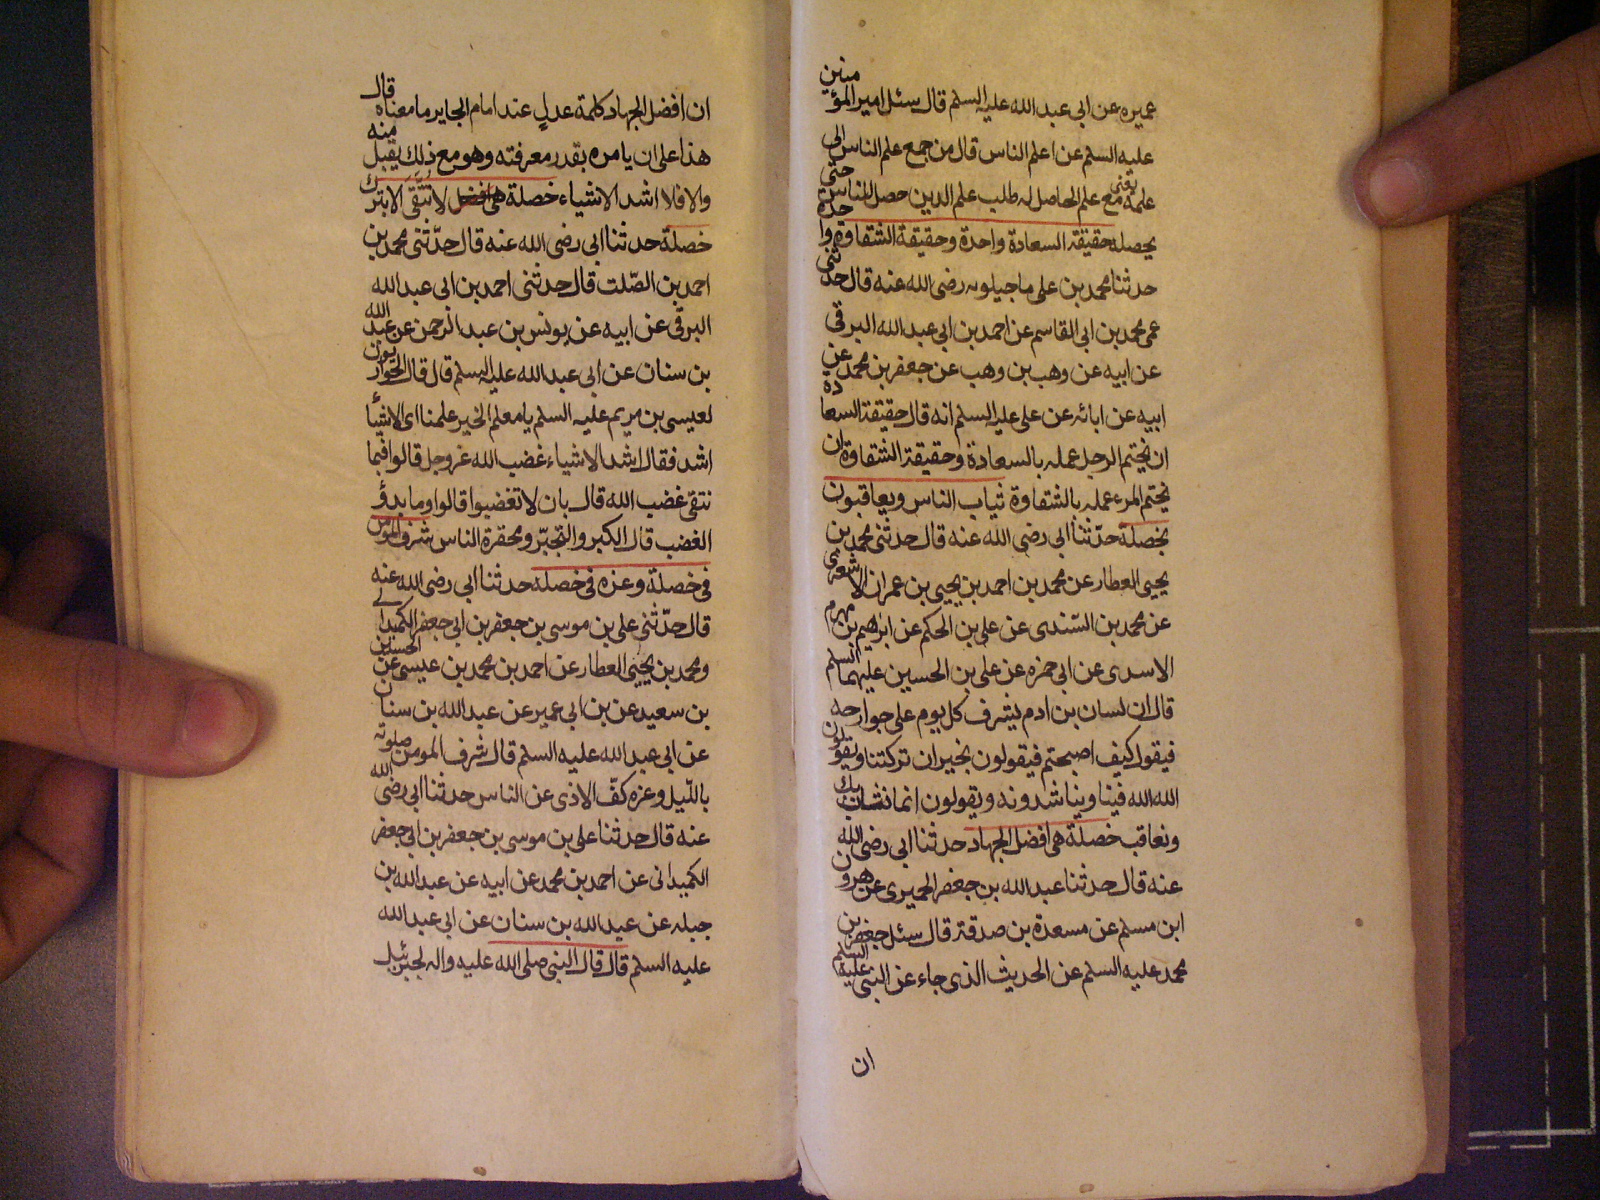 عميره عن ابي عبد الله عليه السلم قال سئل امير المؤمنين
عليه السلم عن اعلم الناس قال من جمع علم الناس الى
علمه مع علم الحاصل له طلب علم الدين حصل للناس
يحصله حقيقة السعادة واحدة وحقيقة الشقاوة واحدة
حدثنا محمد بن على ماجيلويه رضى الله عنه قال حدثنى
عمى محمد بن ابى القاسم عن احمد بن ابى عبد الله البرقى
عن ابيه عن وهب بن وهب عن جعفر بن محمد عن
ابيه عن ابائه عن على عليه السلم انه قال حقيقة السعادة
ان يختم الرجل عمله بالسعادة وحقيقة الشقاوة ان
يختم المرء عمله بالشقاوة ثياب الناس ويعاقبون
بخصلة حدّثنا ابى رضى الله عنه قال حدثنى محمد بن
يحيى العطار عن محمد بن احمد بن يحيى بن عمران الاشعرى
عن محمد بن السّندى عن على بن الحكم عن ابرهيم بن مهزم
الاسدى عن ابى حمزه عن على بن الحسين عليهما السلم
قال ان لسان بن ادم يشرف كل يوم على جوارحه
فيقول كيف اصبحتم فيقولون بخير ان تركتنا ويقولون
الله الله فينا ويناشدونه ويقولون انما نثاب بك
ونعاقب خصلة هى افضل الجهاد حدثنا ابى رضى الله
عنه قال حدثنا عبد الله بن جعفر الحميرى عن هرون
ابن مسلم عن مسعدة بن صدقة قال سئل جعفر بن
محمد عليه السلم عن الحديث الذى جاء عن النبى عليه السلم
ان
ان افضل الجهاد كلمة عدلٍ عند امام الجاير ما معناه قال
هذا على ان يامره بقدر معرفته وهو مع ذلك يقبل منه
والا فلا اشد الاشياء خصلة لا تتّقى الا بترك
خصلة حدثنا ابى رضى الله عنه قال حدّثنى محمد بن
احمد بن الصّلت قال حدثنى احمد بن ابى عبد الله
البرقى عن ابيه عن يونس بن عبد الرحمن عن عبد الله
بن سنان عن ابى عبد الله عليه السلم قال قال الحواريون
لعيسى بن مريم عليه السلم يا معلم الخير علمنا اى الاشياء
اشد فقال اشد الاشياء غضب الله عز وجل قالوا فبما
نتقى غضب الله قال بان لا تغضبوا قالوا وما بدؤ
الغضب قال الكبر والتجبّر ومحقرة الناس شرف المؤمن
فى خصلة وعزه فى خصله حدثنا ابى رضى الله عنه
قال حدّثنى على بن موسى بن جعفر بن ابى جعفر الكميدانى
ومحمد بن يحيى العطار عن احمد بن محمد بن عيسى عن الحسين
بن سعيد عن بن ابى عمير عن عبد الله بن سنان
عن ابى عبد الله عليه السلم قال شرف المومن صلوته
بالليل وعزه كفّ الاذى عن الناس حدثنا ابى رضى الله
عنه قال حدثنا على بن موسى بن جعفر بن ابى جعفر
الكميدانى عن احمد بن محمد عن ابيه عن عبد الله بن
جبله عن عبد الله بن سنان عن ابى عبد الله
عليه السلم قال قال النبى صلى الله عليه واله لجبرئيل